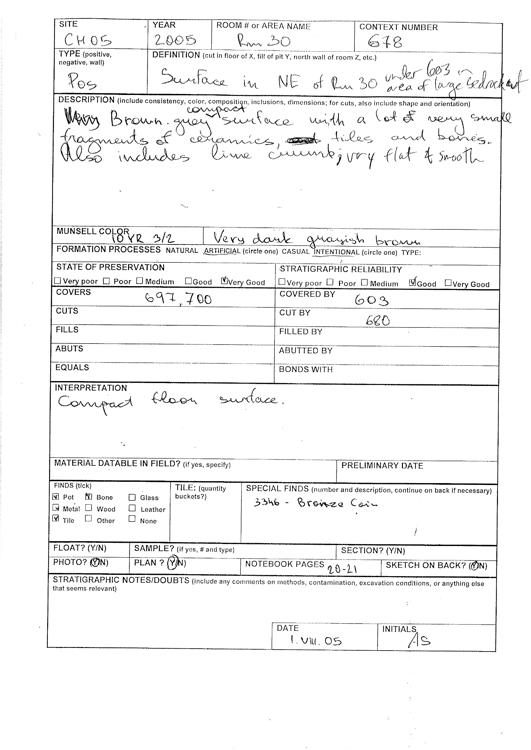 SITE YEAR ROOM # or AREA NAME CONTEXT NUMBER
CH05 2005 Rm 30 678
TYPE (positive, negative, wall) DEFINITION (cut in floor of X, fill of pit Y, north wall of room Z, etc.)
Pos Surface in NE of Rm 30 under 603 in area of large bedrock cut
DESCRIPTION (include consistency, color, composition, inclusions, dimensions; for cuts, also include shape and orientation)
compact
Brown-grey surface with a lot of very small
fragments of ceramics, tiles and bones.
Also includes lime crumb; very flat & smooth
MUNSELL COLOR
10YR 3/2 Very dark grayish brown
FORMATION PROCESSES NATURAL ARTIFICIAL (circle one) CASUAL INTENTIONAL (circle one) TYPE:
STATE OF PRESERVATION STRATIGRAPHIC RELIABILITY
Very poor Poor Medium Good Very Good Very poor Poor Medium Good Very Good
COVERS 697, 700 COVERED BY 603
CUTS CUT BY 680
FILLS FILLED BY
ABUTS ABUTTED BY
EQUALS BONDS WITH
INTERPRETATION
Compact floor surface.
MATERIAL DATABLE IN FIELD? (if yes, specify) PRELIMINARY DATE
FINDS (tick) TILE: (quantity buckets?) SPECIAL FINDS (number and description, continue on back if necessary)
Pot Bone Glass 3346 - Bronze Coin
Metal Wood Leather
Tile Other None
FLOAT? (Y/N) SAMPLE? (if yes, # and type) SECTION? (Y/N)
PHOTO? (Y/N) PLAN ? (Y/N) NOTEBOOK PAGES 20-21 SKETCH ON BACK? (Y/N)
STRATIGRAPHIC NOTES/DOUBTS (include any comments on methods, contamination, excavation conditions, or anything else
that seems relevant)
DATE INITIALS
1.VIII.05 AS